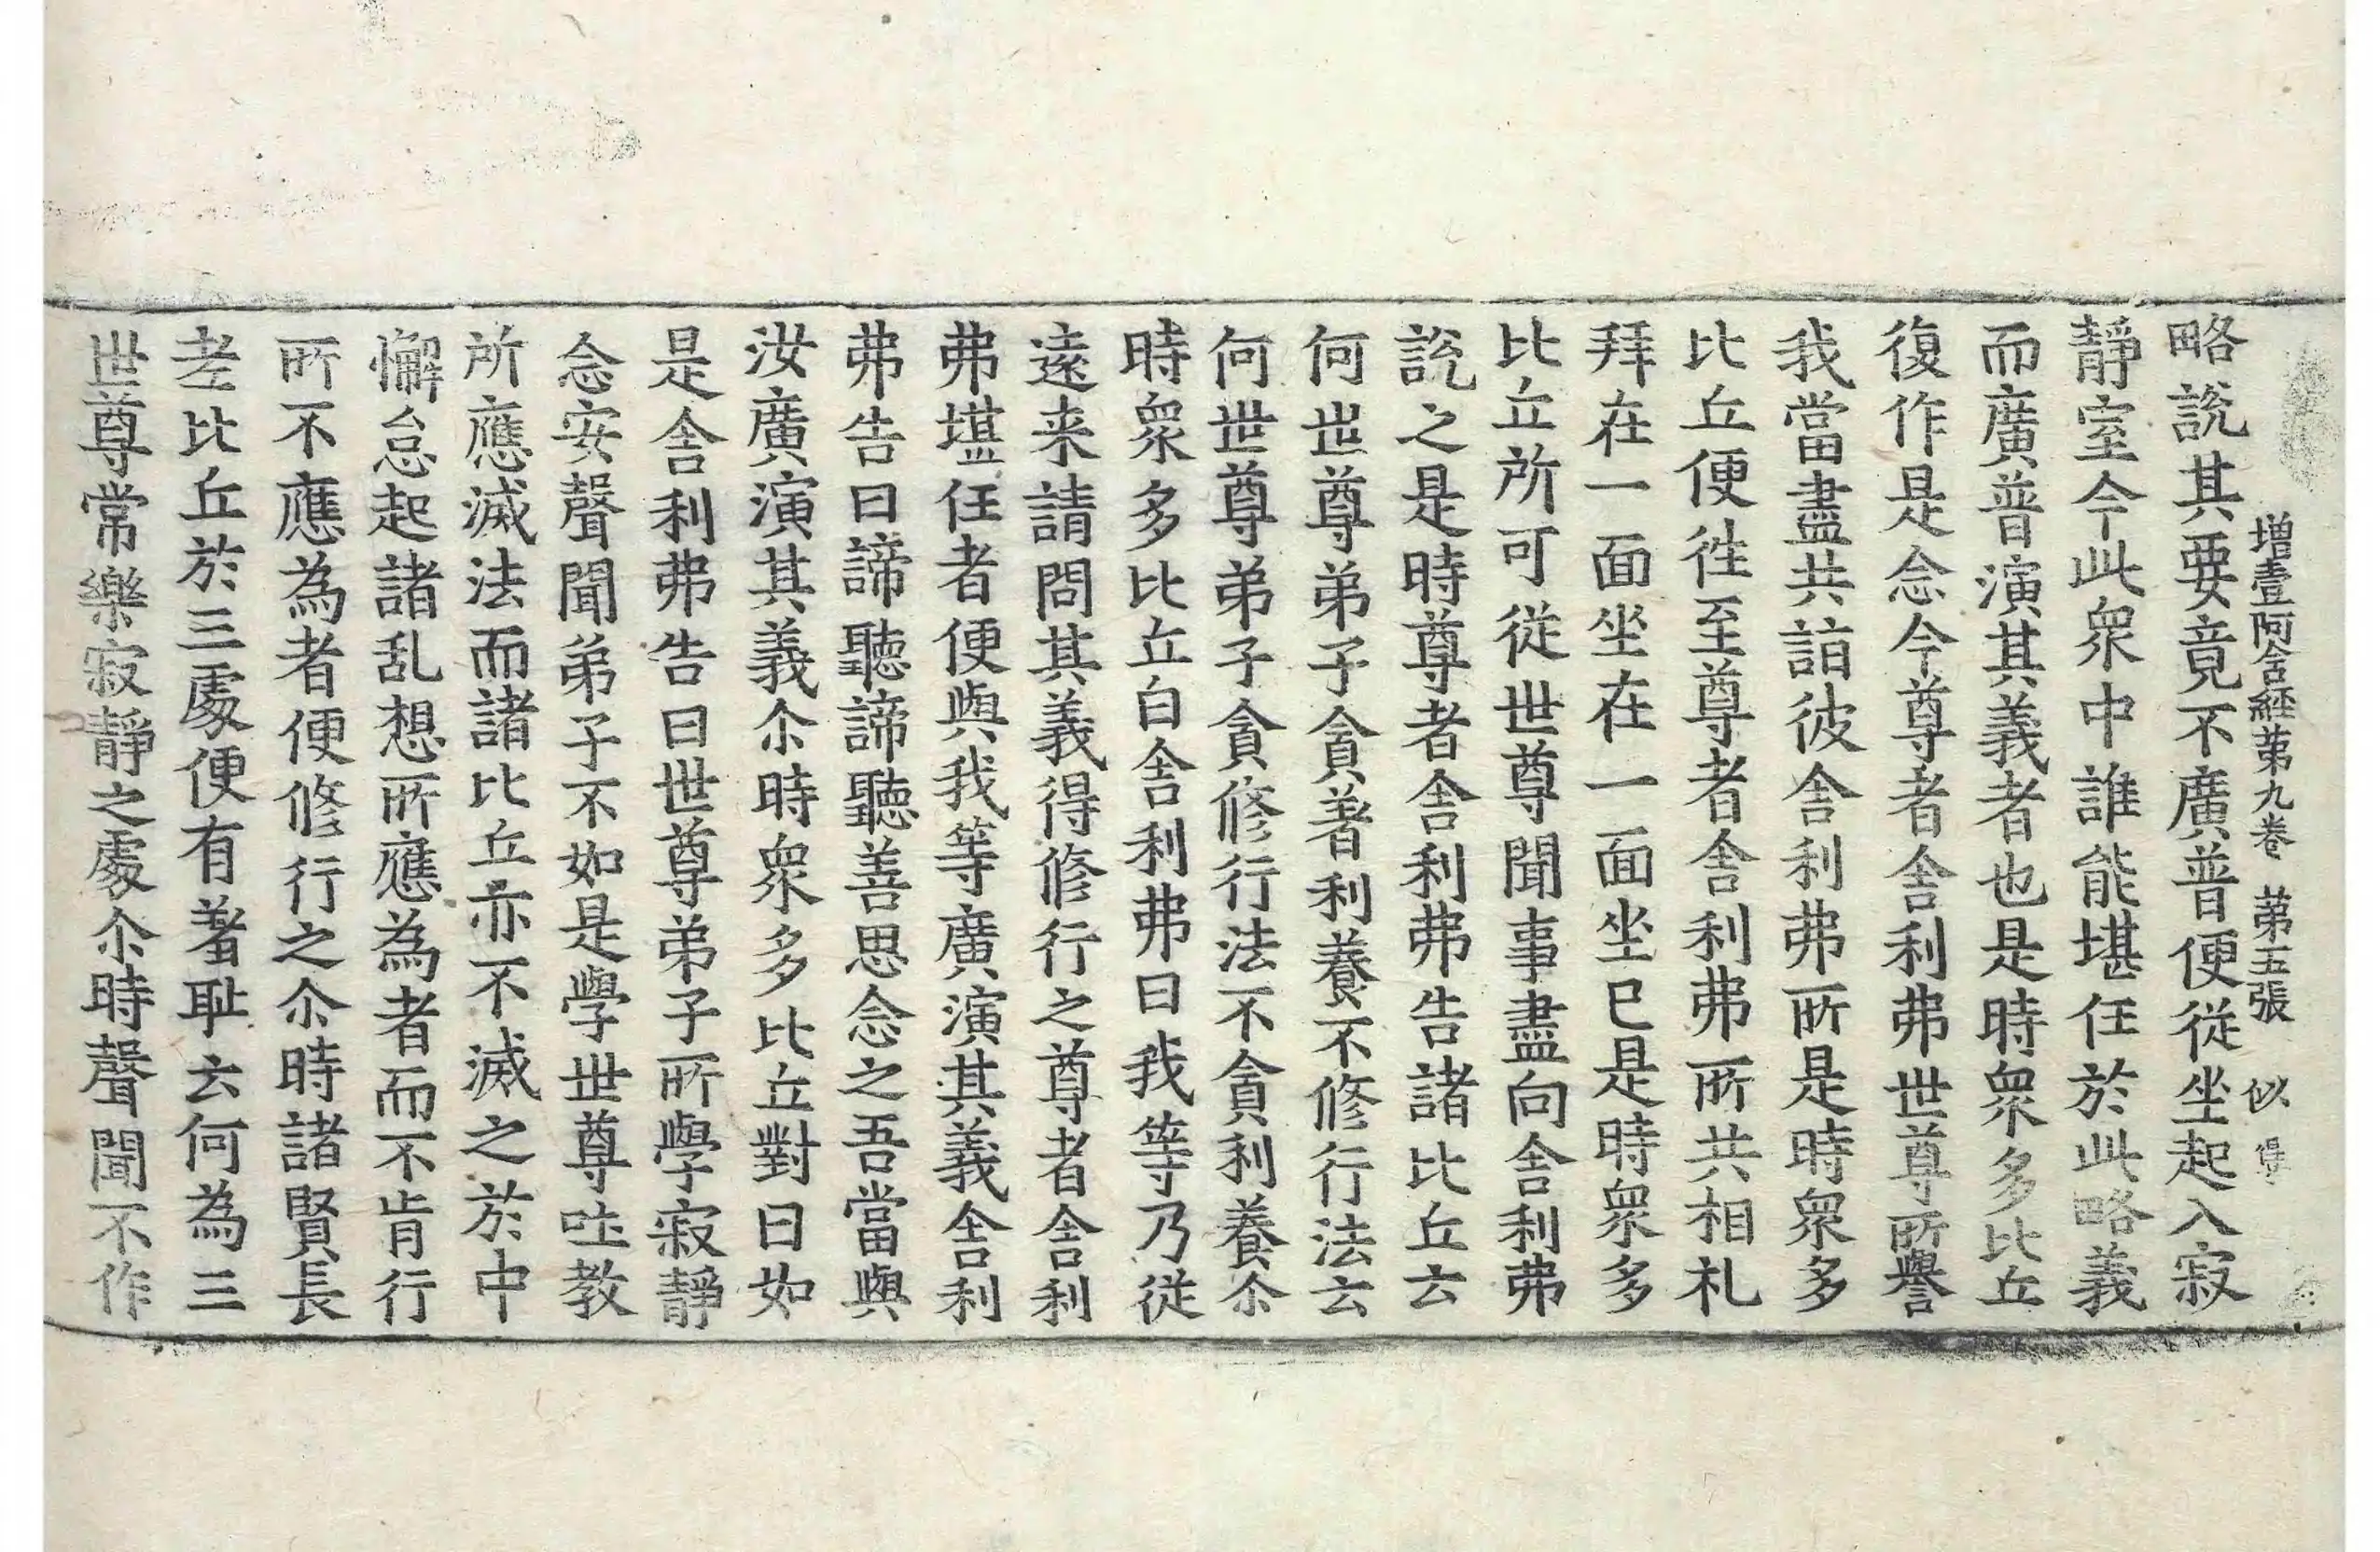 增壹阿含經第九卷 第五張 似
略說其要竟不廣普便從坐起入寂
靜室今此衆中誰能堪任於此略義
而廣普演其義者也是時衆多比丘
復作是念今尊者舍利弗世尊所譽
我當盡共詣彼舍利弗所是時衆多
比丘便往至尊者舍利弗所共相礼
拜在一面坐在一面坐已是時衆多
比丘所可從世尊聞事盡向舍利弗
說之是時尊者舍利弗告諸比丘云
何世尊弟子貪著利養不修行法云
何世尊弟子貪修行法不貪利養尒
時衆多比丘白舍利弗曰我等乃從
遠来請問其義得修行之尊者舍利
弗堪任者便與我等廣演其義舍利
弗告曰諦聽諦聽善思念之吾當與
汝廣演其義尒時衆多比丘對曰如
是舍利弗告曰世尊弟子所學寂靜
念安聲聞弟子不如是學世尊吐教
所應滅法而諸比丘亦不滅之於中
懈怠起諸乱想所應為者而不肯行
所不應為者便修行之尒時諸賢長
老比丘於三處便有羞耻云何為三
世尊常樂寂靜之處尒時聲聞不作